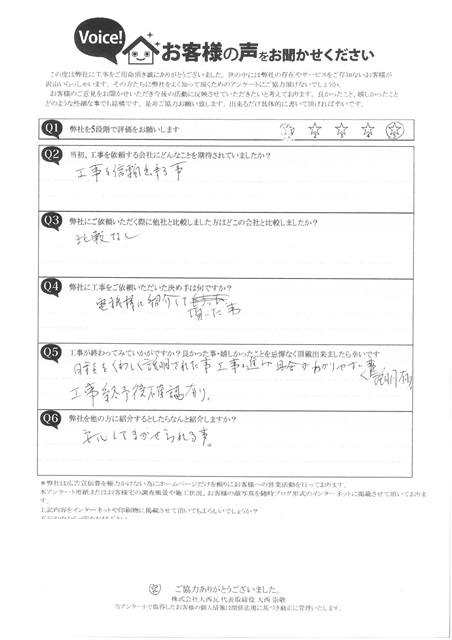 Voice!
お客様の声をお聞かせください
この度は弊社に工事をご用命頂き誠にありがとうございました。世の中には弊社の存在やサービスをご存知ないお客様が
沢山いらっしゃいます。その方たちに弊社をよく知って頂くためのアンケートにご協力頂けないでしょうか。
お客様のご意見をお聞かせいただき今後の活動に反映させていただきたいと考えております。良かったこと、嬉しかったこと
どのような些細な事でも結構です。是非ご協力お願い致します。出来るだけ具体的に書いて頂ければ幸いです。
Q1 弊社を5段階で評価をお願いします
Q2 当初、工事を依頼する会社にどんなことを期待されていましたか?
工事を信頼出来る事
Q3 弊社にご依頼いただく際に他社と比較しました方はどこの会社と比較しましたか?
比較なし
Q4 弊社に工事をご依頼いただいた決め手は何ですか?
様に紹介して
頂った事
Q5 工事が終わってみていかがですか?良かった事・嬉しかったことを忌憚なく頂戴出来ましたら幸いです
日程をくわしく説明された事 工事の進み具合がわかりやすく説明有り
工事終了後確認有り。
Q6 弊社を他の方に紹介するとしたらなんと紹介しますか?
安心してまかせられる事。
*弊社は広告宣伝費を極力かけない為にホームページだけを頼りにお客様への営業活動を行っております。
本アンケート用紙またはお客様宅の調査風景や施工状況、お客様の顔写真を随時ブログ形式のインターネットに掲載させて頂いております。
1.記内容をインターネットや印刷物に掲載させて頂いてもよろしいでしょうか?
ご協力ありがとうございました。
株式会社大西瓦 代表取締役 大西 崇敬
当アンケートで取得したお客様の個人情報は関係法規に基づき厳正に管理いたします。